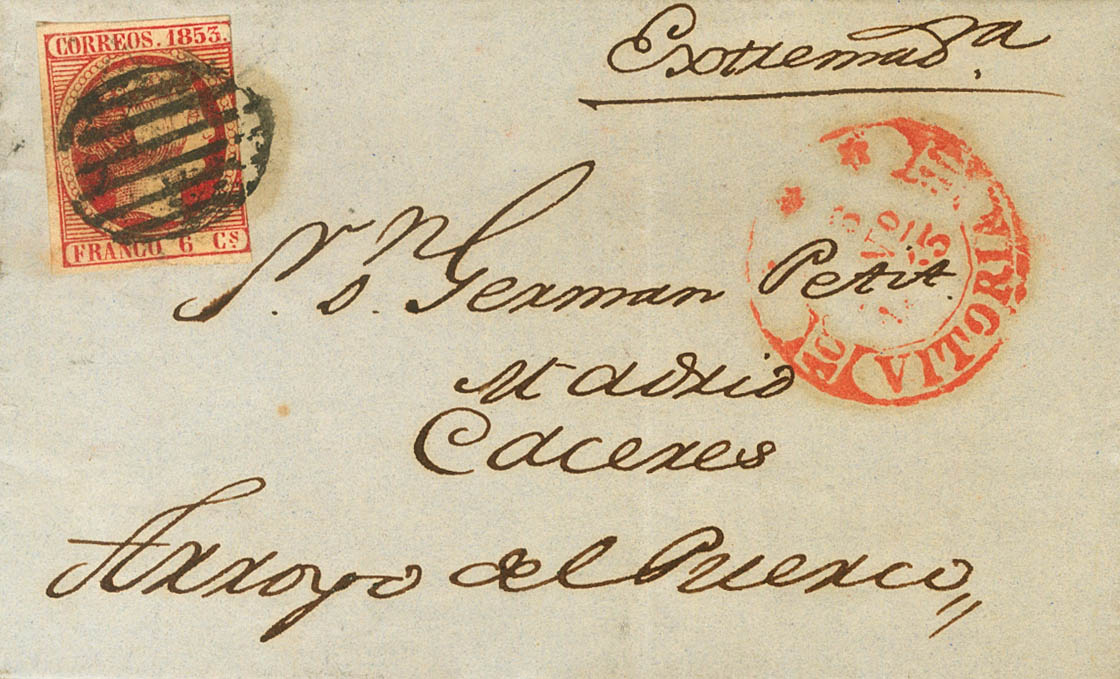 CORREOS. 1853.
FRANCO 6 Cs
Extremad.a
VITORIA
Sr. Dn. German Petit.
Madrid
Caceres
Arroyo del Puerco